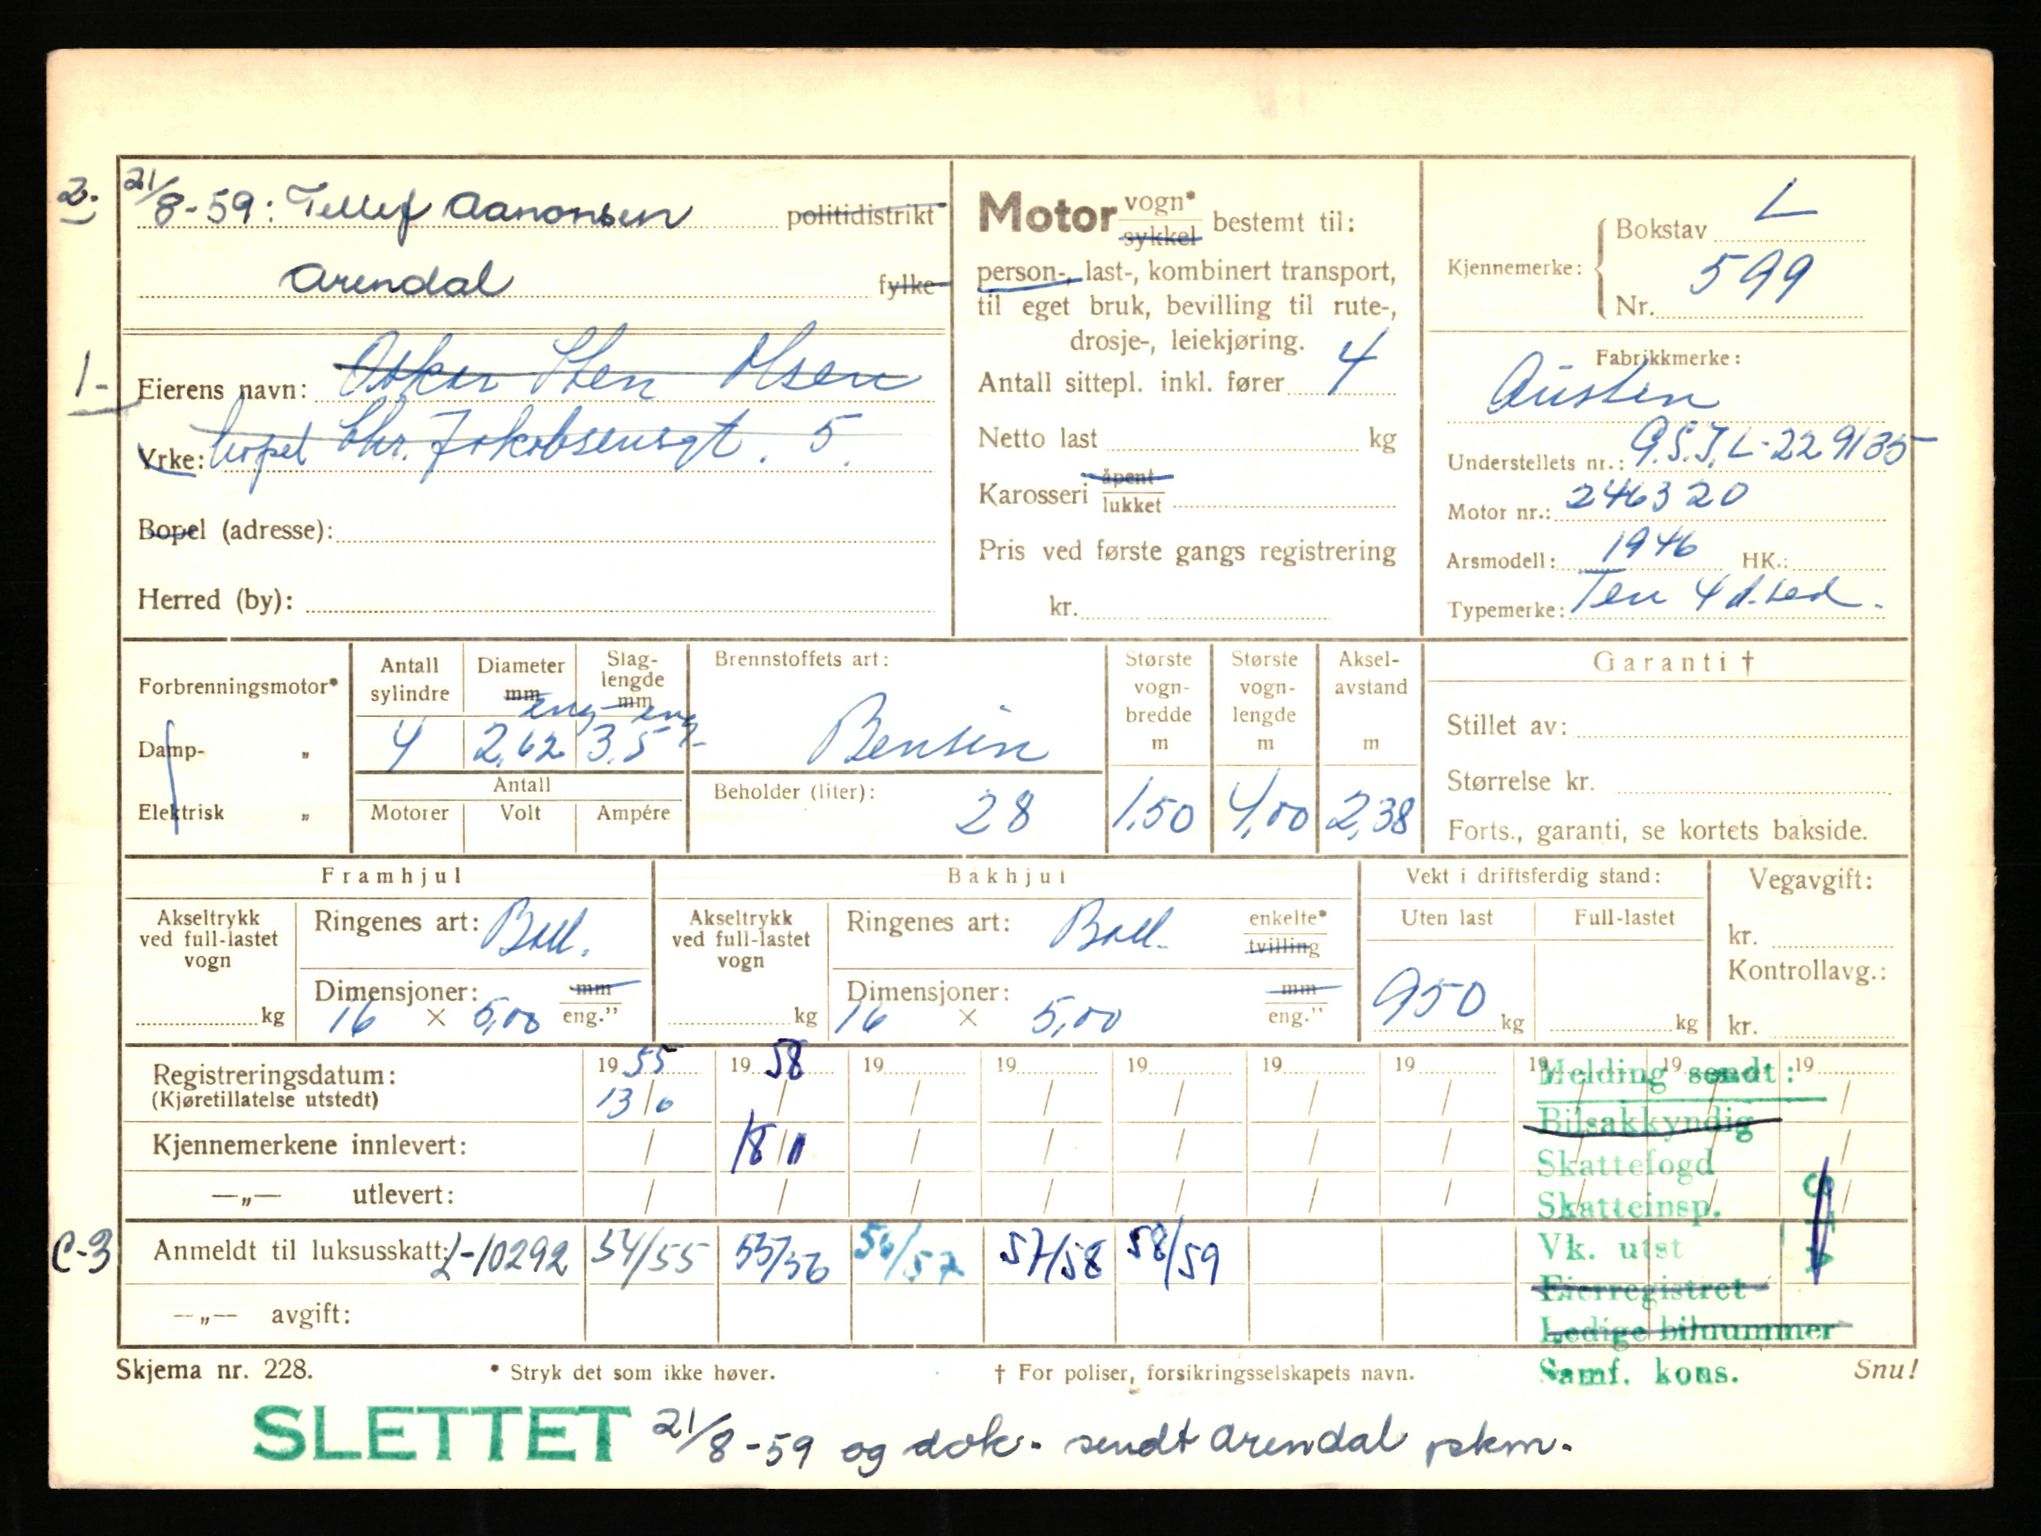 2. 21/8-59: Tellef Aanonsen politidistrikt
Arendal fylke
1- Eierens navn: Oskar Sten Olsen
Yrke: bopel Chr. Jakobsensgt. 5.
Bopel (adresse):
Herred (by):
Motor vogn* sykkel bestemt til:
person-, last-, kombinert transport,
til eget bruk, bevilling til rute-,
drosje-, leiekjøring.
Antall sittepl. inkl. fører 4
Netto last kg
Karosseri åpent lukket
Pris ved første gangs registrering
kr.
Kjennemerke: Bokstav L
Nr. 599
Fabrikkmerke:
Austen
Understellets nr.: G.S.I.L-229135
Motor nr.: 246320
Arsmodell: 1946 HK.:
Typemerke: Ten 4 d. sed.
Forbrenningsmotor*
Damp- „
Elektrisk „
Antall sylindre
4
Diameter mm eng
2,62
Slag-
lengde
mm eng
3.5
Antall
Motorer Volt Ampére
Brennstoffets art:
Bensin
Beholder (liter): 28
Største
vogn-
bredde
m
1,50
Største
vogn-
lengde
m
4,00
Aksel-
avstand
m
2,38
Garanti †
Stillet av:
Størrelse kr.
Forts., garanti, se kortets bakside.
Framhjul
Akseltrykk
ved full-lastet
vogn
kg
Ringenes art: Ball.
Dimensjoner: mm
16 × 5,00 eng.”
Bakhjul
Akseltrykk
ved full-lastet
vogn
kg
Ringenes art: Ball. enkelte* tvilling
Dimensjoner: mm
16 × 5,00 eng.”
Vekt i driftsferdig stand:
Uten last Full-lastet
950 kg kg
Vegavgift:
kr.
Kontrollavg.:
kr.
Registreringsdatum: 19 55 19 58 19 19 19 19 19 19 19 19
(Kjøretillatelse utstedt) 13/6 / / / / / / / / /
Kjennemerkene innlevert: / 18/11 / / / / / / / /
—„— utlevert: / / / / / / / / / /
C-3 Anmeldt til luksusskatt: L-10292 54/55 55/56 56/57 57/58 58/59
—„— avgift:
Melding sendt:
Bilsakkyndig
Skattefogd
Skatteinsp.
Vk. utst
Eierregistret
Ledige bilnummer
Samf. kons.
Skjema nr. 228. * Stryk det som ikke høver. † For poliser, forsikringsselskapets navn. Snu!
SLETTET 21/8-59 og dok. sendt Arendal pskm.